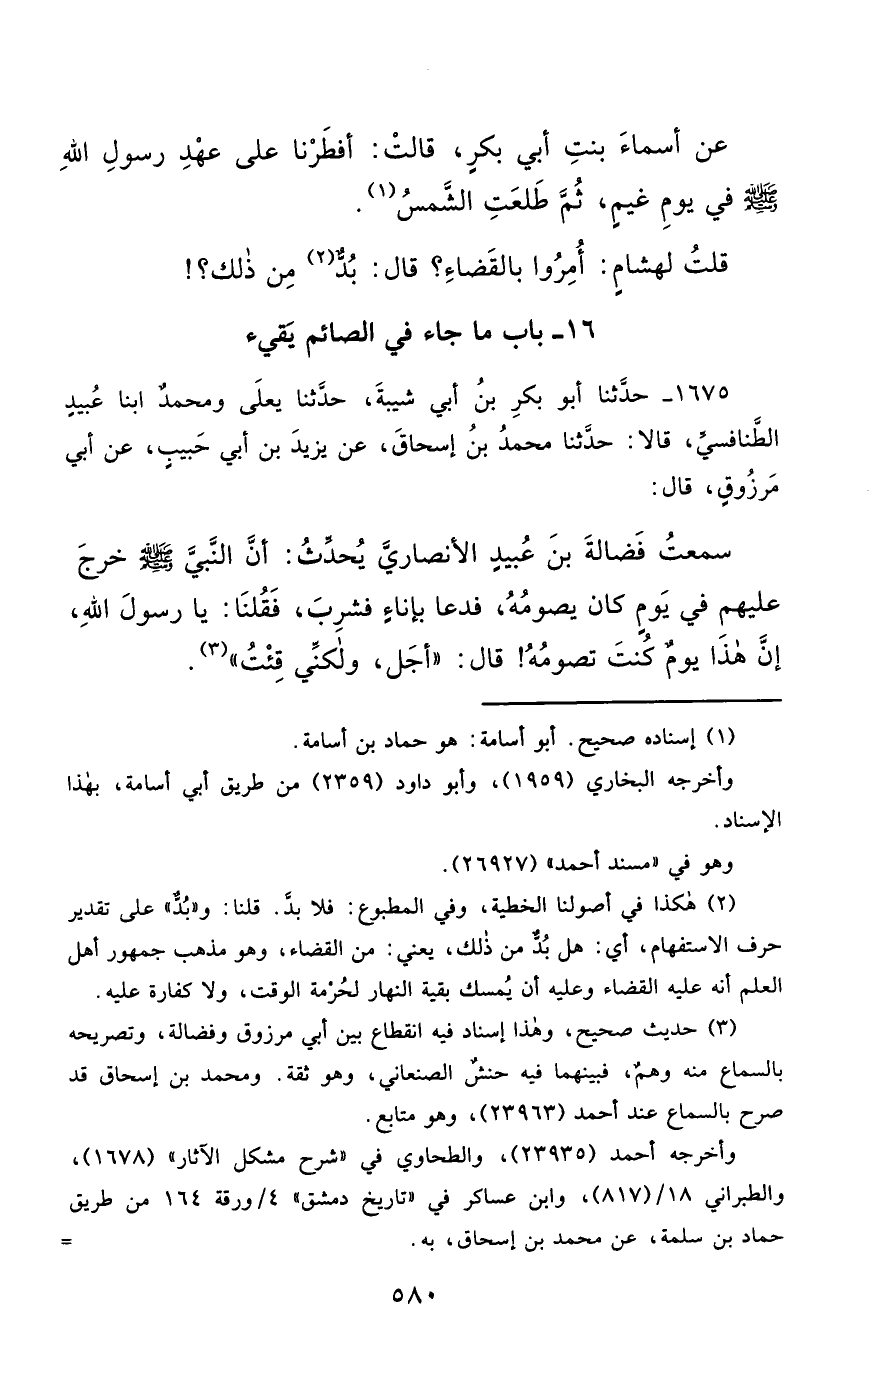 عن أسماءَ بنتِ أبي بكرٍ، قالتْ: أفطَرْنا على عهْدِ رسولِ اللهِ
ﷺ في يومِ غيمٍ، ثُمَّ طَلعَتِ الشَّمسُ(١).
قلتُ لهشامٍ: أُمِرُوا بالقَضاءِ؟ قال: بُدٌّ(٢) مِن ذٰلك؟!
١٦ـ باب ما جاء في الصائم يَقيء
١٦٧٥ـ حدَّثنا أبو بكرِ بنُ أبي شيبةَ، حدَّثنا يعلَى ومحمدٌ ابنا عُبيدٍ
الطَّنافسيِّ، قالا: حدَّثنا محمدُ بنُ إسحاقَ، عن يزيدَ بن أبي حَبيبٍ، عن أبي
مَرزُوقٍ، قال:
سمعتُ فَضالةَ بنَ عُبيدٍ الأنصاريَّ يُحدِّثُ: أنَّ النَّبيَّ ﷺ خرجَ
عليهم في يَومٍ كان يصومُهُ، فدعا بإناءٍ فشرِبَ، فَقُلنَا: يا رسولَ اللهِ،
إنَّ هٰذَا يومٌ كُنتَ تصومُهُ! قال: «أجَل، ولٰكنِّي قِئْتُ»(٣).
(١) إسناده صحيح. أبو أسامة: هو حماد بن أسامة.
وأخرجه البخاري (١٩٥٩)، وأبو داود (٢٣٥٩) من طريق أبي أسامة، بهٰذا
الإسناد.
وهو في «مسند أحمد» (٢٦٩٢٧).
(٢) هٰكذا في أصولنا الخطية، وفي المطبوع: فلا بدَّ. قلنا: و«بُدٌّ» على تقدير
حرف الاستفهام، أي: هل بُدٌّ من ذٰلك، يعني: من القضاء، وهو مذهب جمهور أهل
العلم أنه عليه القضاء وعليه أن يُمسك بقية النهار لحُرْمة الوقت، ولا كفارة عليه.
(٣) حديث صحيح، وهٰذا إسناد فيه انقطاع بين أبي مرزوق وفضالة، وتصريحه
بالسماع منه وهمٌ، فبينهما فيه حنشٌ الصنعاني، وهو ثقة. ومحمد بن إسحاق قد
صرح بالسماع عند أحمد (٢٣٩٦٣)، وهو متابع.
وأخرجه أحمد (٢٣٩٣٥)، والطحاوي في «شرح مشكل الآثار» (١٦٧٨)،
والطبراني ١٨/(٨١٧)، وابن عساكر في «تاريخ دمشق» ٤/ورقة ١٦٤ من طريق
حماد بن سلمة، عن محمد بن إسحاق، به. =
٥٨٠